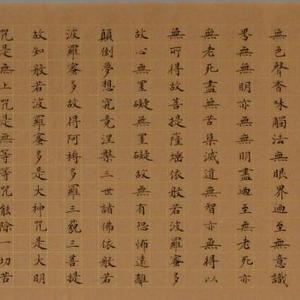 無色聲香味觸法無眼界乃至無意識
界無無明亦無無明盡乃至無老死亦
無老死盡無苦集滅道無智亦無得以
無所得故菩提薩埵依般若波羅蜜多
故心無罣礙無罣礙故無有恐怖遠離
顛倒夢想究竟涅槃三世諸佛依般若
波羅蜜多故得阿耨多羅三藐三菩提
故知般若波羅蜜多是大神咒是大明
咒是無上咒是無等等咒能除一切苦